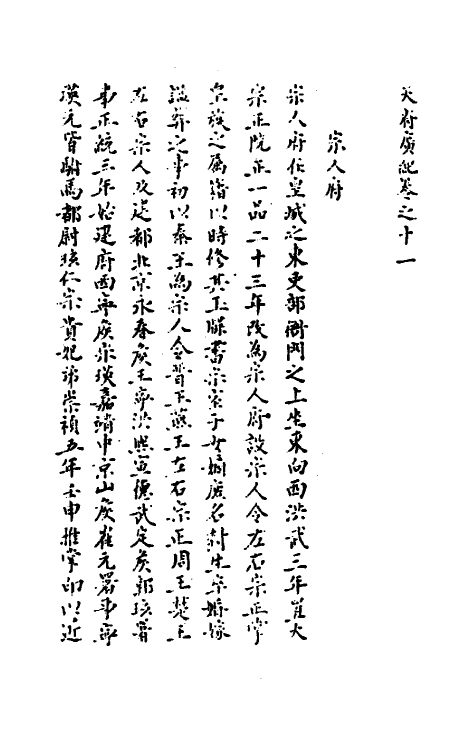 天府廣紀卷之十一
宗人府
宗人府在皇城之東吏部衙門之上坐東向西洪武三年置大
宗正院正一品二十三年改為宗人府設宗人令左右宗正掌
皇族之屬籍以時修其玉牒書宗室子女嫡庶名封生卒婚嫁
謚葬之事初以秦王為宗人令晉王燕王左右宗正周王楚王
左右宗人及建都北京永春侯王寧洪熙宣德武定侯郭玹署
事正統三年始建府西寧侯宋瑛嘉靖中京山侯崔元署事寧
瑛元皆駙馬都尉玹仁宗貴妃弟崇禎五年壬申推掌印以近